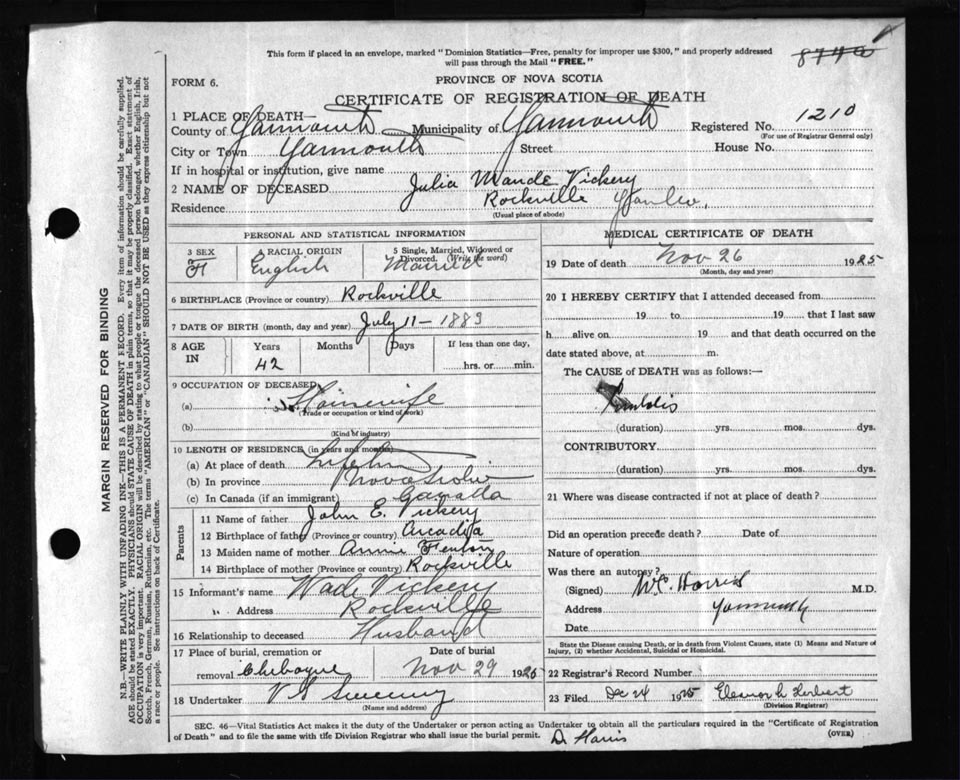 This form if placed in an envelope, marked "Dominion Statistics—Free, penalty for improper use $300," and properly addressed
will pass through the Mail "FREE."
8740
FORM 6.
PROVINCE OF NOVA SCOTIA
CERTIFICATE OF REGISTRATION OF DEATH
1 PLACE OF DEATH—
County of Yarmouth Municipality of Yarmouth Registered No. 1210
(For use of Registrar General only)
City or Town Yarmouth Street House No.
If in hospital or institution, give name
2 NAME OF DECEASED Julia Maude Vickery
Residence Rockville Yar
(Usual place of abode)
PERSONAL AND STATISTICAL INFORMATION
3 SEX F
4 RACIAL ORIGIN English
5 Single, Married, Widowed or Divorced. (Write the word) Married
6 BIRTHPLACE (Province or country) Rockville
7 DATE OF BIRTH (month, day and year) July 11 - 1883
8 AGE IN Years 42 Months Days If less than one day, hrs. or min.
9 OCCUPATION OF DECEASED
(a) Housewife
(Trade or occupation or kind of work)
(b)
(Kind of industry)
10 LENGTH OF RESIDENCE (in years and months)
(a) At place of death
(b) In province Nova Scotia
(c) In Canada (if an immigrant) Canada
Parents
11 Name of father John E. Vickery
12 Birthplace of father (Province or country) Arcadia
13 Maiden name of mother Annie Fenton
14 Birthplace of mother (Province or country) Rockville
15 Informant's name Wade Vickery
" Address Rockville
16 Relationship to deceased Husband
17 Place of burial, cremation or removal Chebogue
Date of burial Nov 29 1925
18 Undertaker V S Sweeny
(Name and address)
MEDICAL CERTIFICATE OF DEATH
19 Date of death Nov 26 1925
(Month, day and year)
20 I HEREBY CERTIFY that I attended deceased from
19 to 19 that I last saw
h alive on 19 and that death occurred on the
date stated above, at m.
The CAUSE of DEATH was as follows:—
(duration) yrs. mos. dys.
CONTRIBUTORY
(duration) yrs. mos. dys.
21 Where was disease contracted if not at place of death?
Did an operation precede death? Date of
Nature of operation
Was there an autopsy?
(Signed) W.C. Harris M.D.
Address Yarmouth
Date
State the Disease causing Death, or in death from Violent Causes, state (1) Means and Nature of
Injury, (2) whether Accidental, Suicidal or Homicidal.
22 Registrar's Record Number
23 Filed Dec 24 1925 Herbert
(Division Registrar)
SEC. 46—Vital Statistics Act makes it the duty of the Undertaker or person acting as Undertaker to obtain all the particulars required in the "Certificate of Registration
of Death" and to file the same with the Division Registrar who shall issue the burial permit.
(OVER)
D. Harris
MARGIN RESERVED FOR BINDING
N.B.—WRITE PLAINLY WITH UNFADING INK—THIS IS A PERMANENT RECORD. Every item of information should be carefully supplied.
AGE should be stated EXACTLY. PHYSICIANS should STATE CAUSE OF DEATH in plain terms, so that it may be properly classified. Exact statement of
OCCUPATION is very important. RACIAL ORIGIN will be described by stating to what people or tongue the deceased person belonged, whether English, Irish,
Scotch, French, German, Russian, Ruthenian, etc. The terms "AMERICAN" or "CANADIAN" SHOULD NOT BE USED as they express citizenship but not
a race or people. See instructions on back of Certificate.